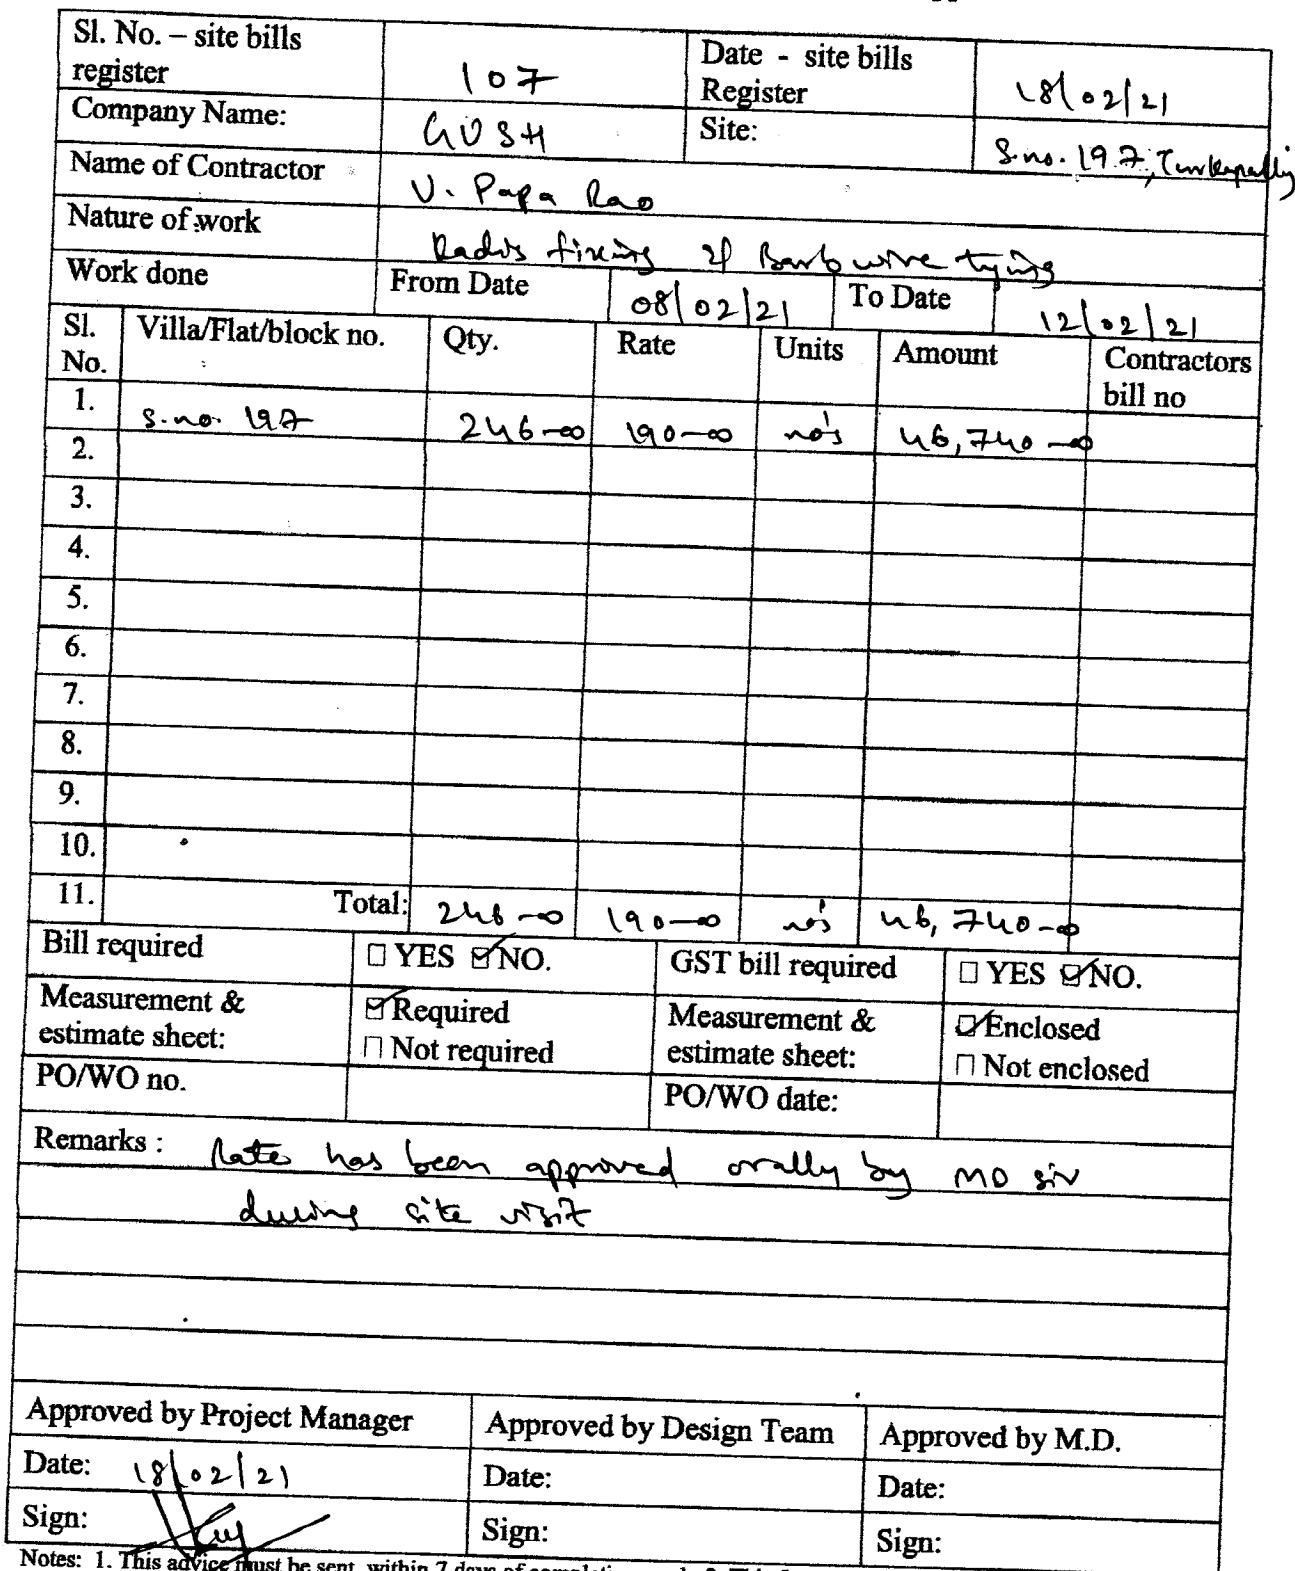 Sl. No. – site bills register 107 Date - site bills Register 18/02/21
Company Name: GVSH Site: S.no. 197, Turkapally
Name of Contractor V. Papa Rao
Nature of work Kadis fixing & Barb wire tying
Work done From Date 08/02/21 To Date 12/02/21
Sl. No. Villa/Flat/block no. Qty. Rate Units Amount Contractors bill no
1. S.no. 197 246-00 190-00 no's 46,740-00
2.
3.
4.
5.
6.
7.
8.
9.
10.
11. Total: 246-00 190-00 no's 46,740-00
Bill required ☐ YES ☑ NO. GST bill required ☐ YES ☑ NO.
Measurement & estimate sheet: ☑ Required ☐ Not required Measurement & estimate sheet: ☑ Enclosed ☐ Not enclosed
PO/WO no. PO/WO date:
Remarks : Rate has been approved orally by MD sir
during site visit
Approved by Project Manager Approved by Design Team Approved by M.D.
Date: 18/02/21 Date: Date:
Sign: Sign: Sign:
Notes: 1. This advice must be sent within 7 days of